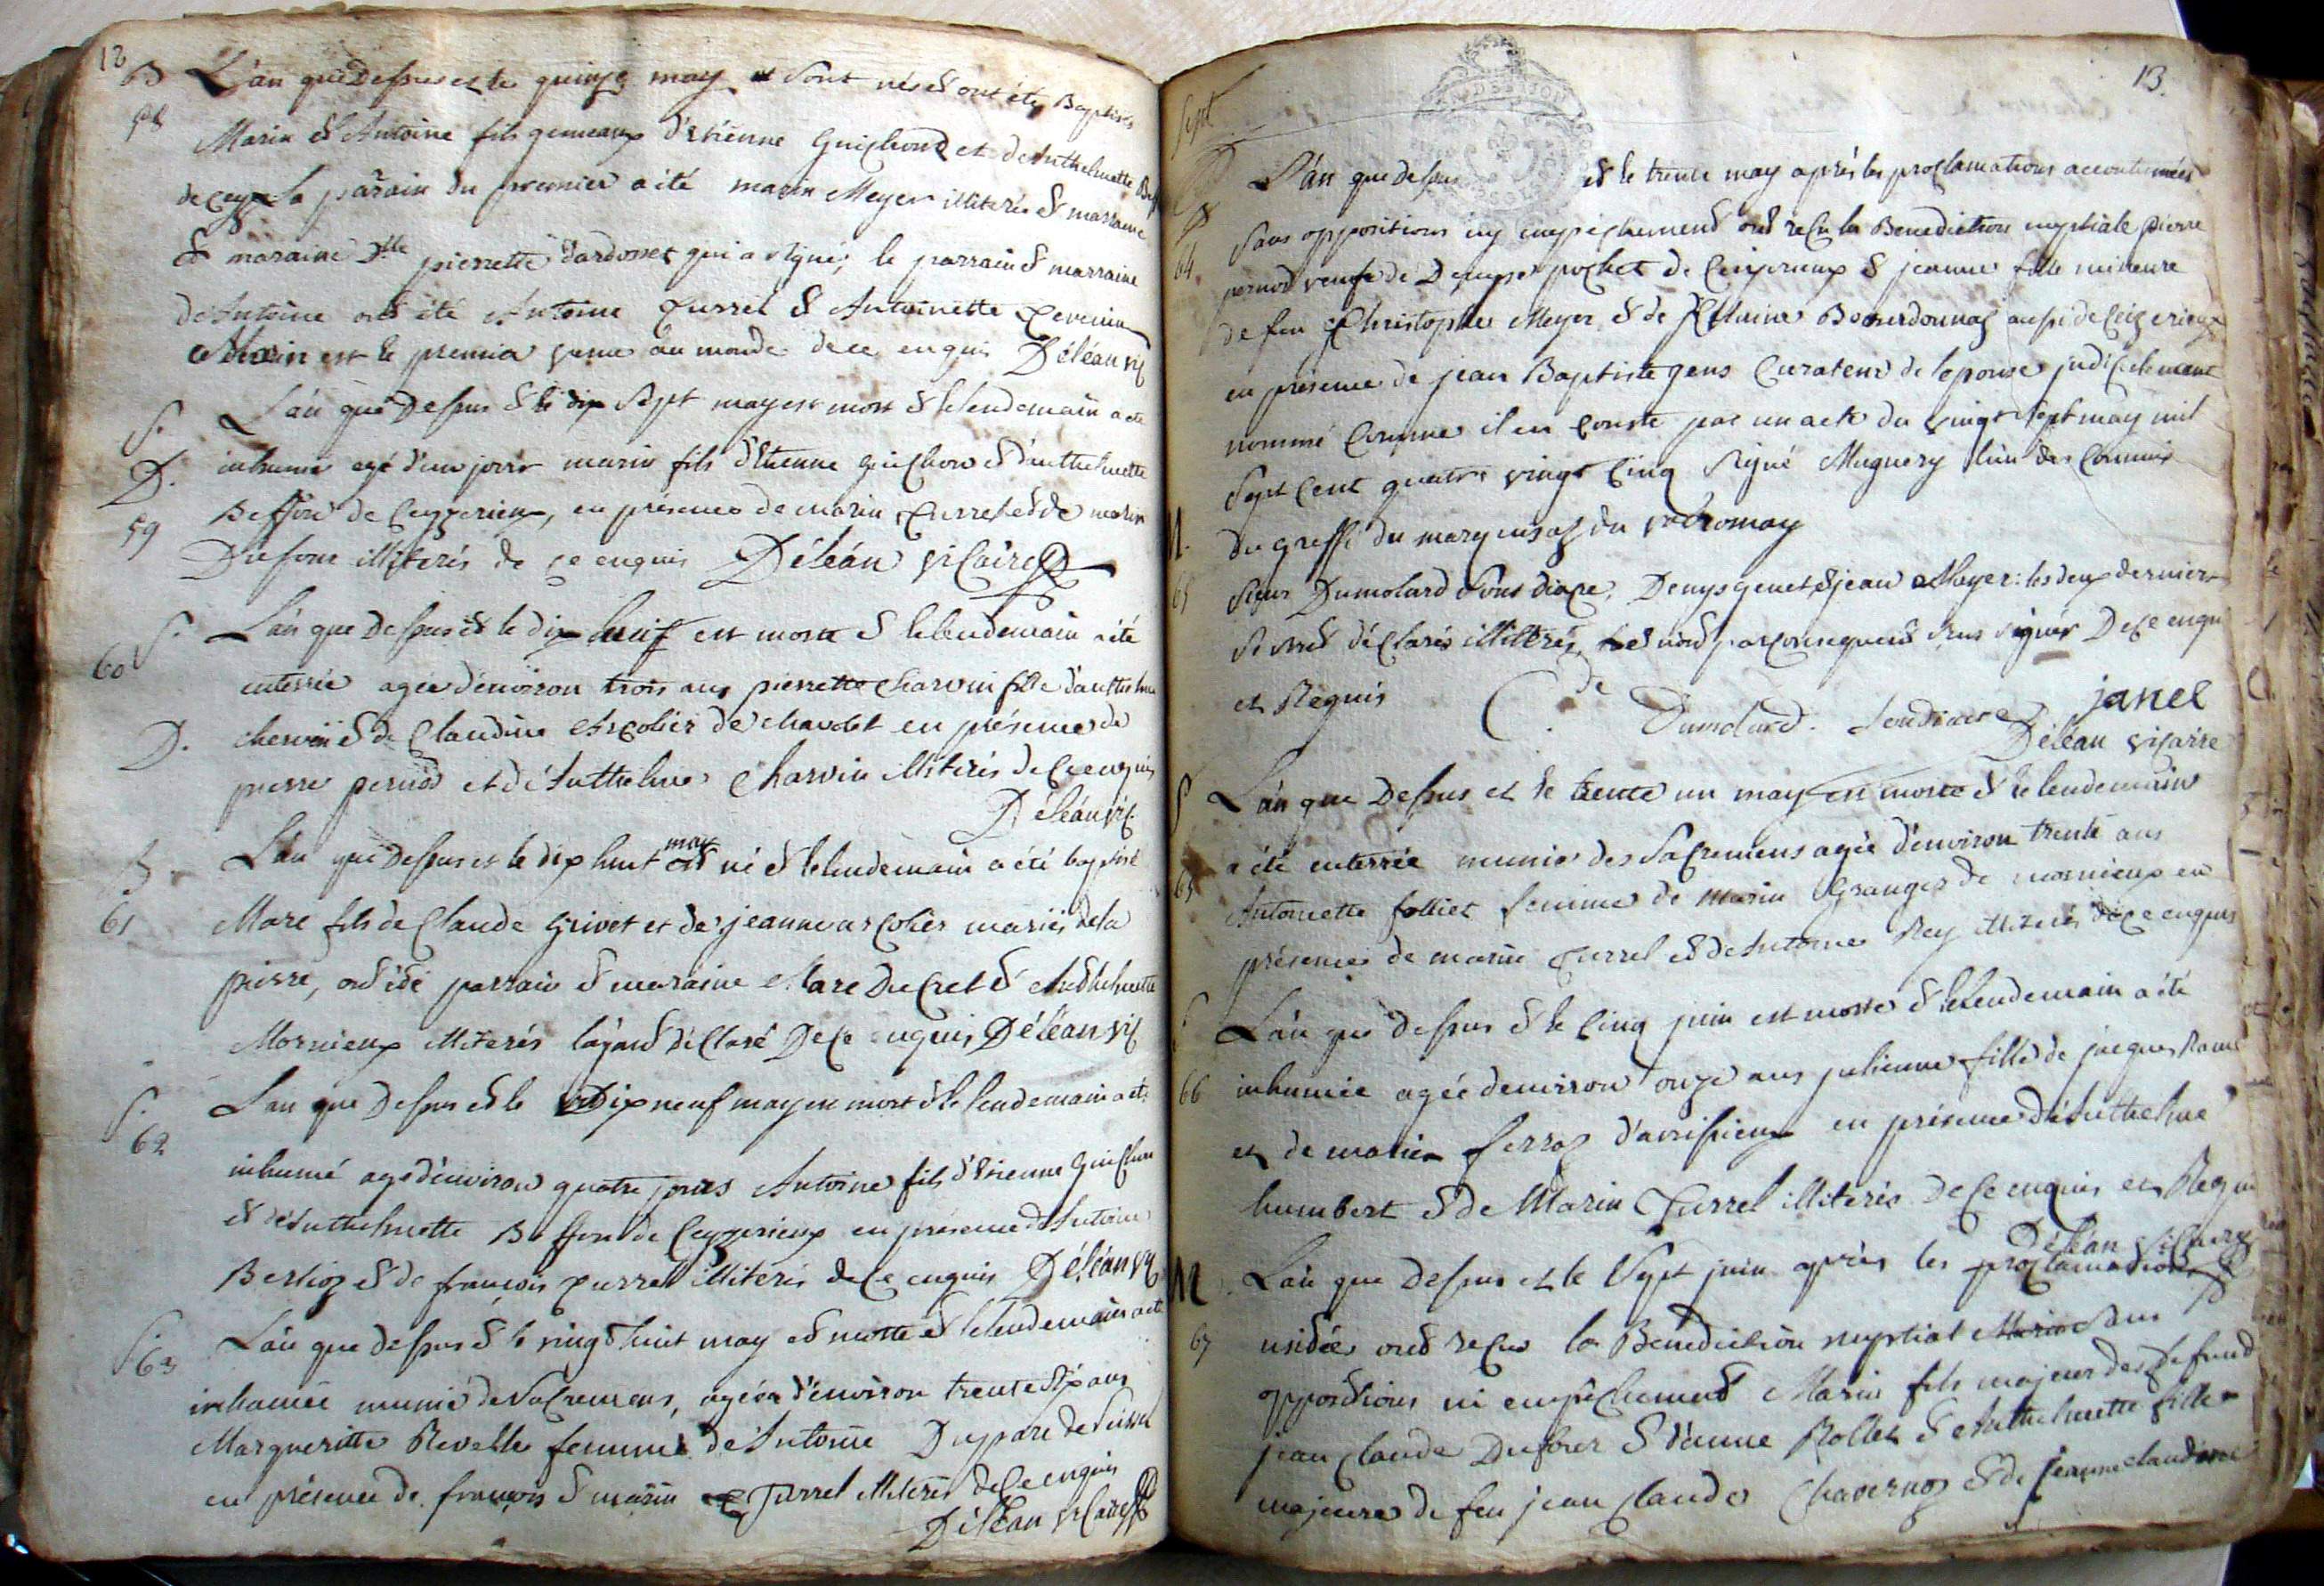 12
B L'an que Dessus et le quinze may sont nés et ont étés Baptisés
58
Marin et Antoine fils gemeaux d'Etienne Guichond et d'Anthelmette
de ceyz. Le parain du premier a été marin Meyer illiteré & marraine
& maraine Dlle pierrette dardosset qui a signé; le parrain & marraine
d'Antoine ont été Antoine Curret & Antoinette
Marin est le premier venu au monde de ce enquis Déléan vic
S. L'an que Dessus & le dix sept may est mort & le lendemain a été
D. inhumé agé d'un jour marin fils d'Etienne Guichon & d'anthelmette
59 Beffon de Ceyzerieux, en présence de marin Curret et de marin
Dufour illiterés de ce enquis Déléan vicaire
S. L'an que Dessus & le dix huit est morte & le lendemain a été
60 enterrée agée d'environ trois ans pierrette charvin fille d'anthelme
D. chervin & de Claudine Arcolier de chavolet en présence de
pierre pernod et d'Anthelme Charvin illiterés de ce enquis
Déléan vic.
B. L'an que Dessus et le dix huit may est né & le lendemain a été baptisé
61 Mare fils de Claude Grivet et de jeanne arcolier mariés de la
pierre, ont été parrain & maraine Mare Ducret & Anthelmette
Mornieux illiterés l'ayant déclaré De ce enquis Déléan vic
S. L'an que Dessus et le Dix neuf may est mort & le lendemain a été
62
inhumé agé d'environ quatre jours Antoine fils d'Etienne Guichon
et d'Anthelmette Beffon de Ceyzerieux en présence d'Antoine
Berlioz & de françois Curret illiterés de ce enquis Déléan vic
S. L'an que dessus & le vingt huit may est morte & le lendemain a été
63
inhumée munie de Sacremens, agée d'environ trente six ans
Margueritte Revelle femme d'Antoine Dupare de
en présence de françois & marin Curret illiterés de ce enquis
Déléan vicaire
13.
Sept
L'an que dessus et le trente may après les proclamations accoutumées
64 sans oppositions ny empêchement ont reçu la Benediction nuptiale pierre
pernod veuf de Denyse pochet de Ceyzerieux & jeanne fille mineure
de feu Christophe Meyer & de Bourdonnaz aussi de Ceyzerieux
en présence de jean Baptiste gens Curateur de l'epouse judiciellement
nommé comme il en conste par un acte du vingt sept may mil
sept cent quatre vingt cinq signé Mugnery l'un des commis
du greffe du marquisat du valromay
65 sieur Dumolard sous diacre, Denys genet & jean Meyer: les deux derniers
se sont déclarés illiterés, et n'ont par consequent sceu signer De ce enquis
et Requis C. de Dumolard. soudiacre janet
Déléan vicaire
S L'an que Dessus et le trente un may est morte & le lendemain
65 a été enterrée munie des Sacremens agée d'environ trente ans
Antoinette folliet femme de Marin Granger de mornieux en
présence de marin Curret & d'Antoine Rey illiterés de ce enquis
S L'an que dessus & le cinq juin est morte & le lendemain a été
66 inhumée agée d'environ onze ans julienne fille de jacques
et de marie ferroz d'avrisieux en présence d'Anthelme
humbert & de Marin Curret illiterés de ce enquis et Requis
Déléan vicaire
M. L'an que dessus et le sept juin après les proclamations
67 usitées ont reçu la Benediction nuptial Marin sans
oppositions ni empêchement Marin fils majeur des defund
jean claude Dufour & d'anne Rollet & Anthelmette fille
majeure de feu jean claude Chavernoz & de jeanne claudine